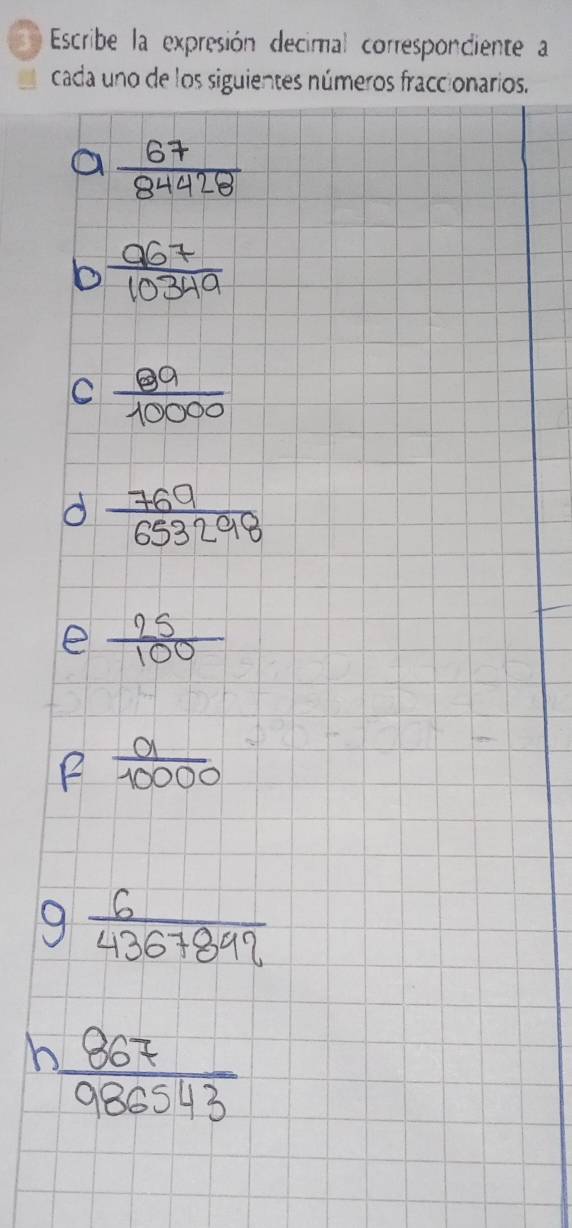 3 Escribe la expresión decimal correspondiente a
cada uno de los siguientes números fraccionarios.
a 67
84428
b 967
10349
c 89
10000
d 769
653298
e 25
100
f 9
10000
g 6
4367892
h 867
986543